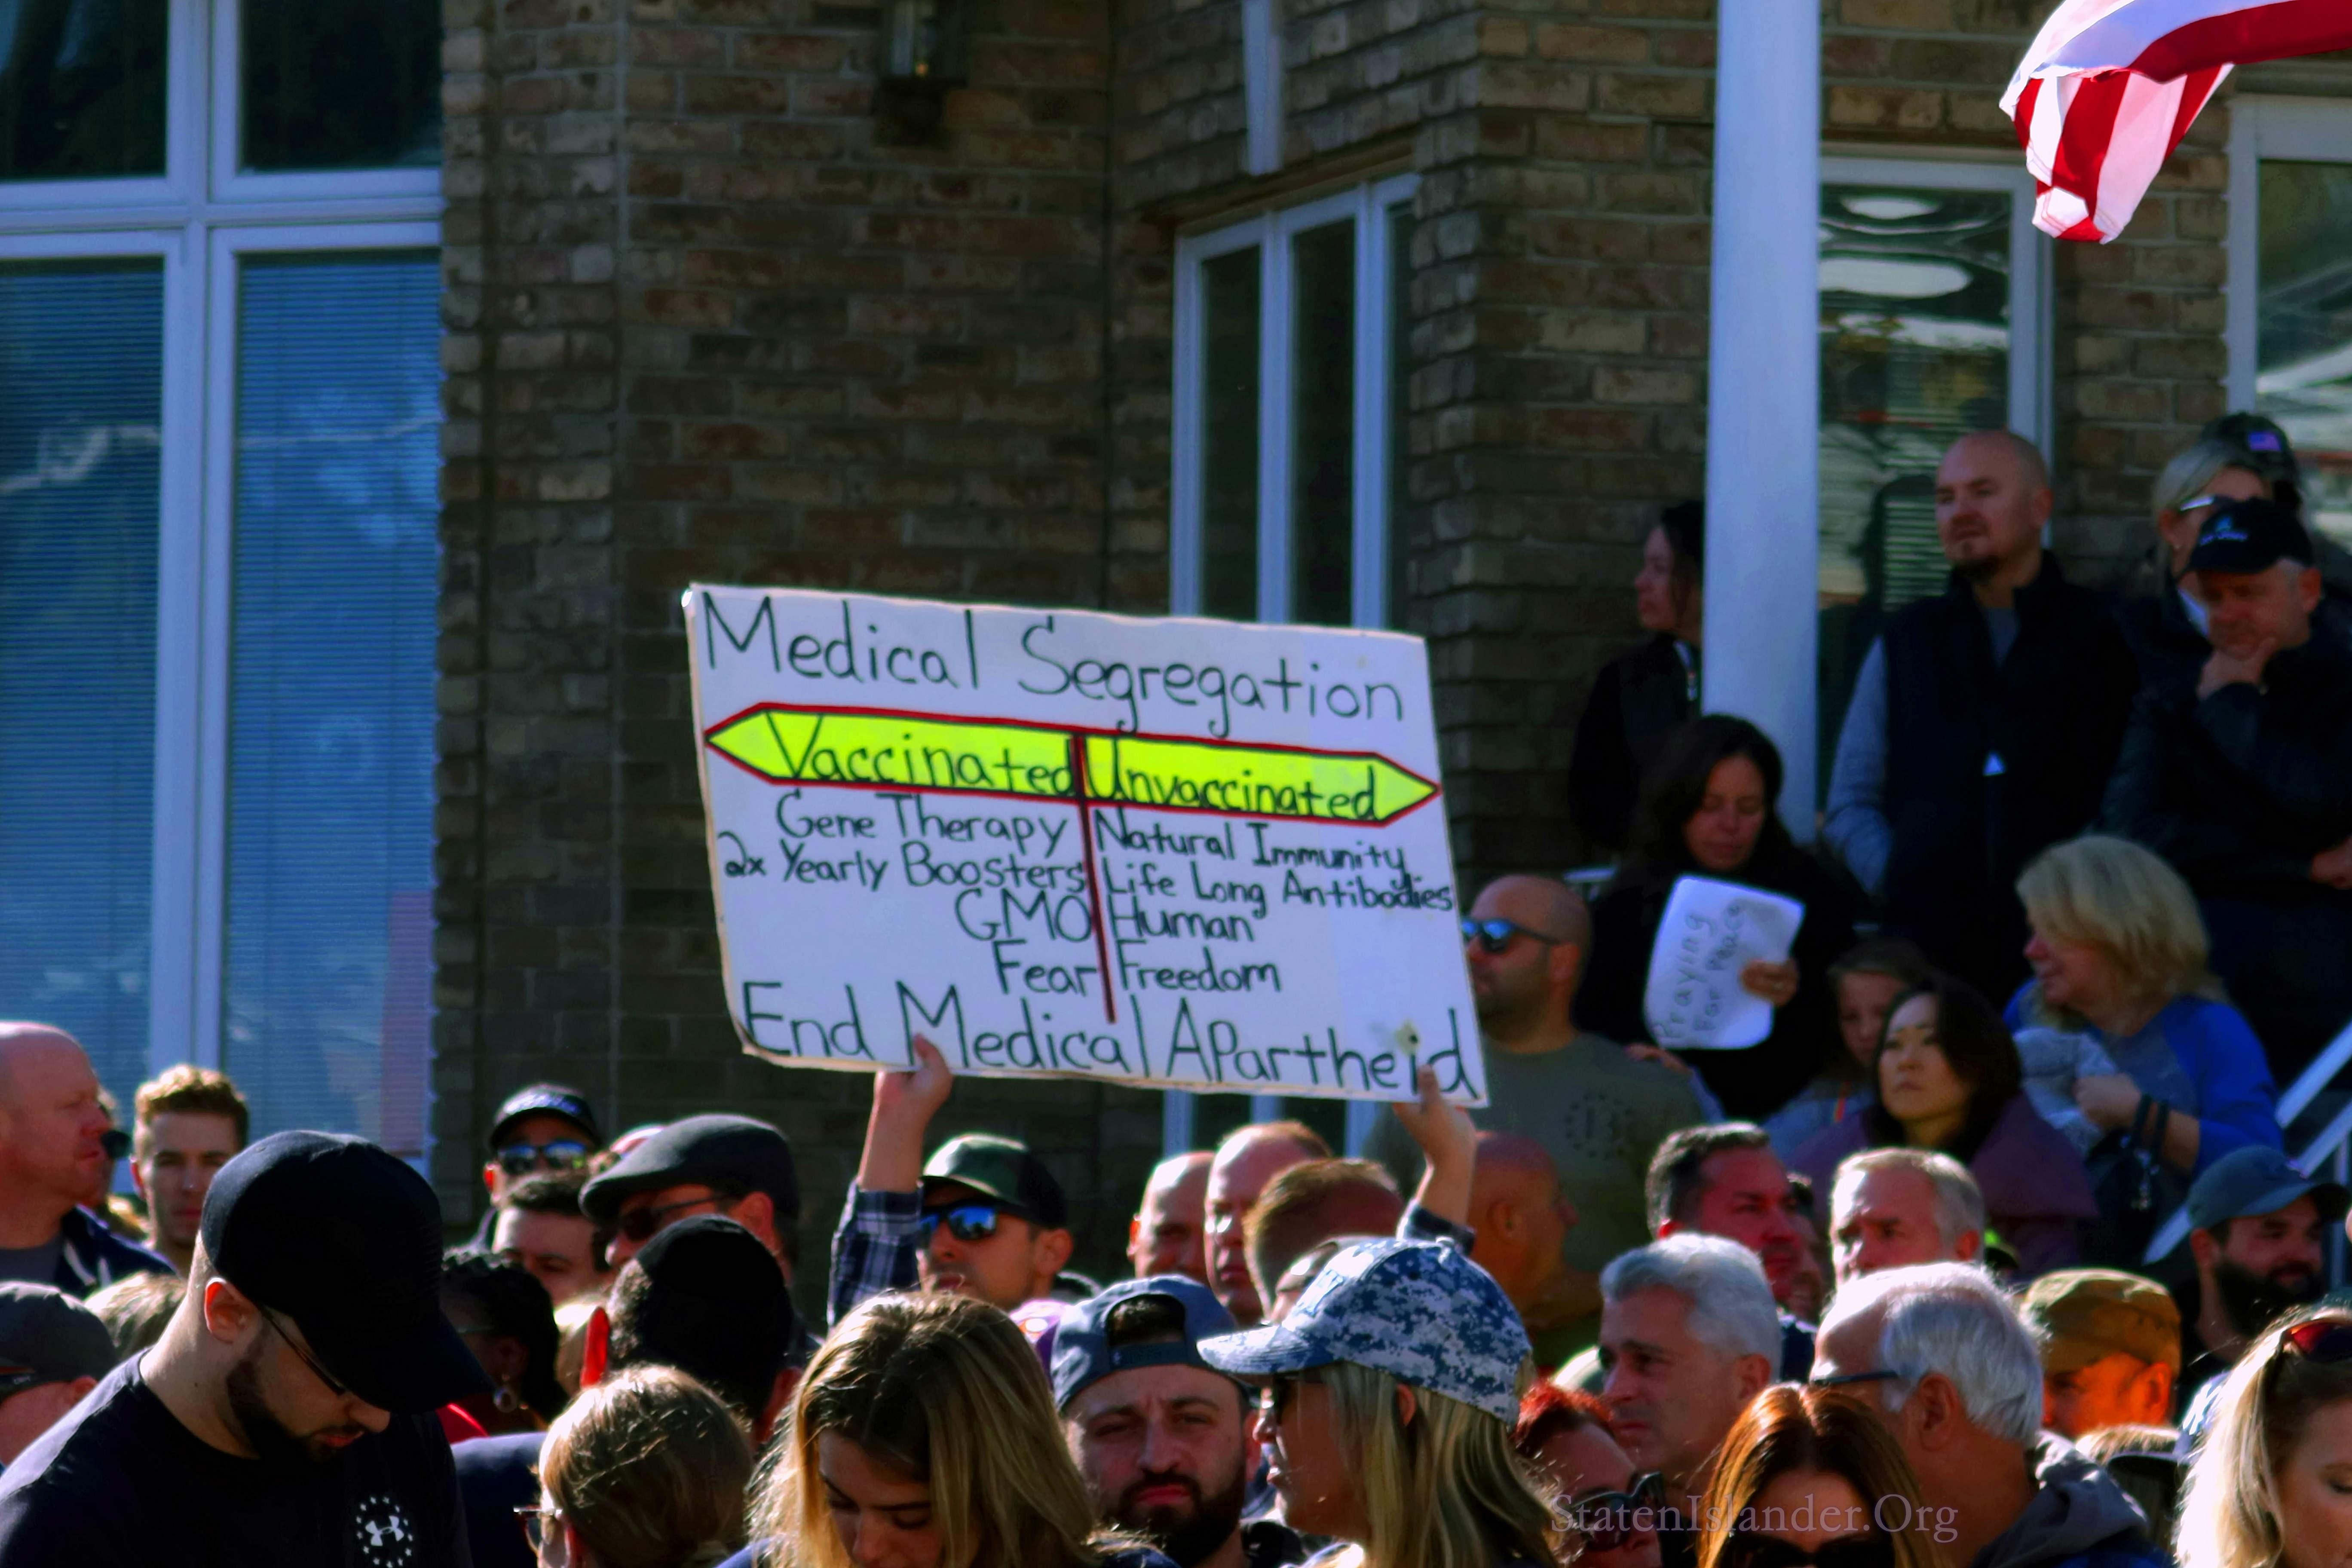 Medical Segregation
Vaccinated Unvaccinated
Gene Therapy Natural Immunity
2x Yearly Boosters Life Long Antibodies
GMO Human
Fear Freedom
End Medical APartheid
Praying
For Peace
StatenIslander.Org